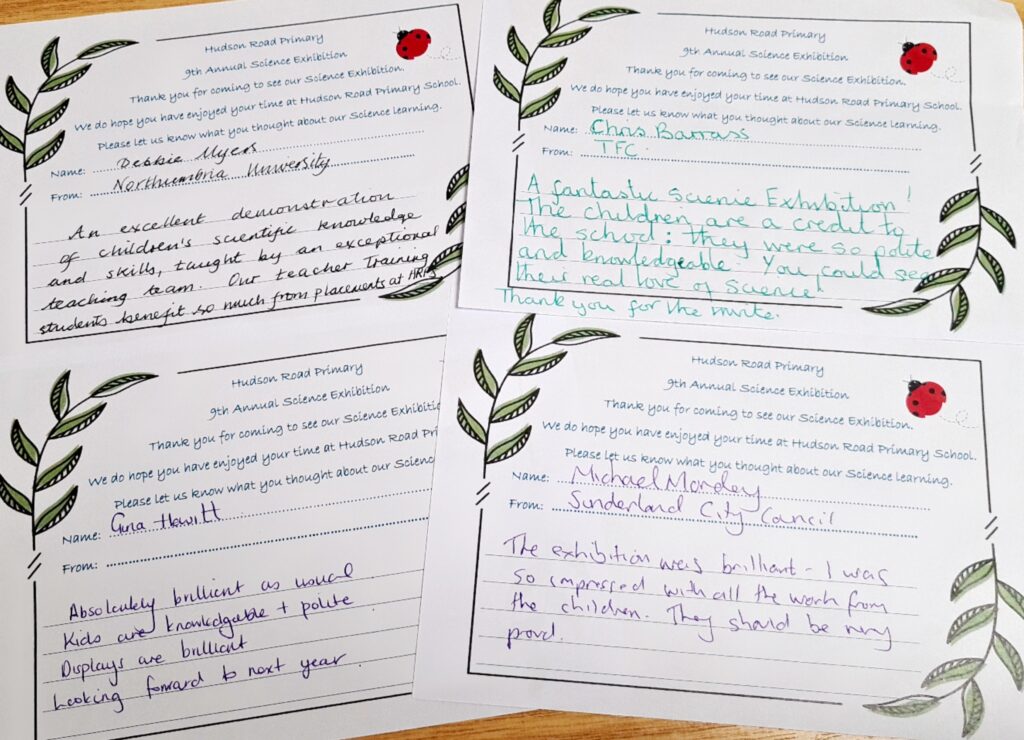 Hudson Road Primary
9th Annual Science Exhibition
Thank you for coming to see our Science Exhibition.
We do hope you have enjoyed your time at Hudson Road Primary School.
Please let us know what you thought about our Science learning.
Name: Debbie Myers
From: Northumbria University
An excellent demonstration
of children's scientific knowledge
and skills, taught by an exceptional
teaching team. Our teacher Training
students benefit so much from placements at HRPS
Hudson Road Primary
9th Annual Science Exhibition
Thank you for coming to see our Science Exhibition.
We do hope you have enjoyed your time at Hudson Road Primary School.
Please let us know what you thought about our Science learning.
Name: Chris Barrass
From: TFC.
A fantastic Science Exhibition!
The children are a credit to
the school: they were so polite
and knowledgeable. You could see
their real love of Science!
Thank you for the invite.
Hudson Road Primary
9th Annual Science Exhibition
Thank you for coming to see our Science Exhibitio
We do hope you have enjoyed your time at Hudson Road Pri
Please let us know what you thought about our Science
Name: Gina Hewitt
From:
Absolutely brilliant as usual
Kids are knowledgable + polite
Displays are brilliant
Looking forward to next year.
Hudson Road Primary
9th Annual Science Exhibition
Thank you for coming to see our Science Exhibition.
We do hope you have enjoyed your time at Hudson Road Primary School.
Please let us know what you thought about our Science learning.
Name: Michael
From: Sunderland City Council
The exhibition was brilliant - I was
so impressed with all the work from
the children. They should be very
proud.